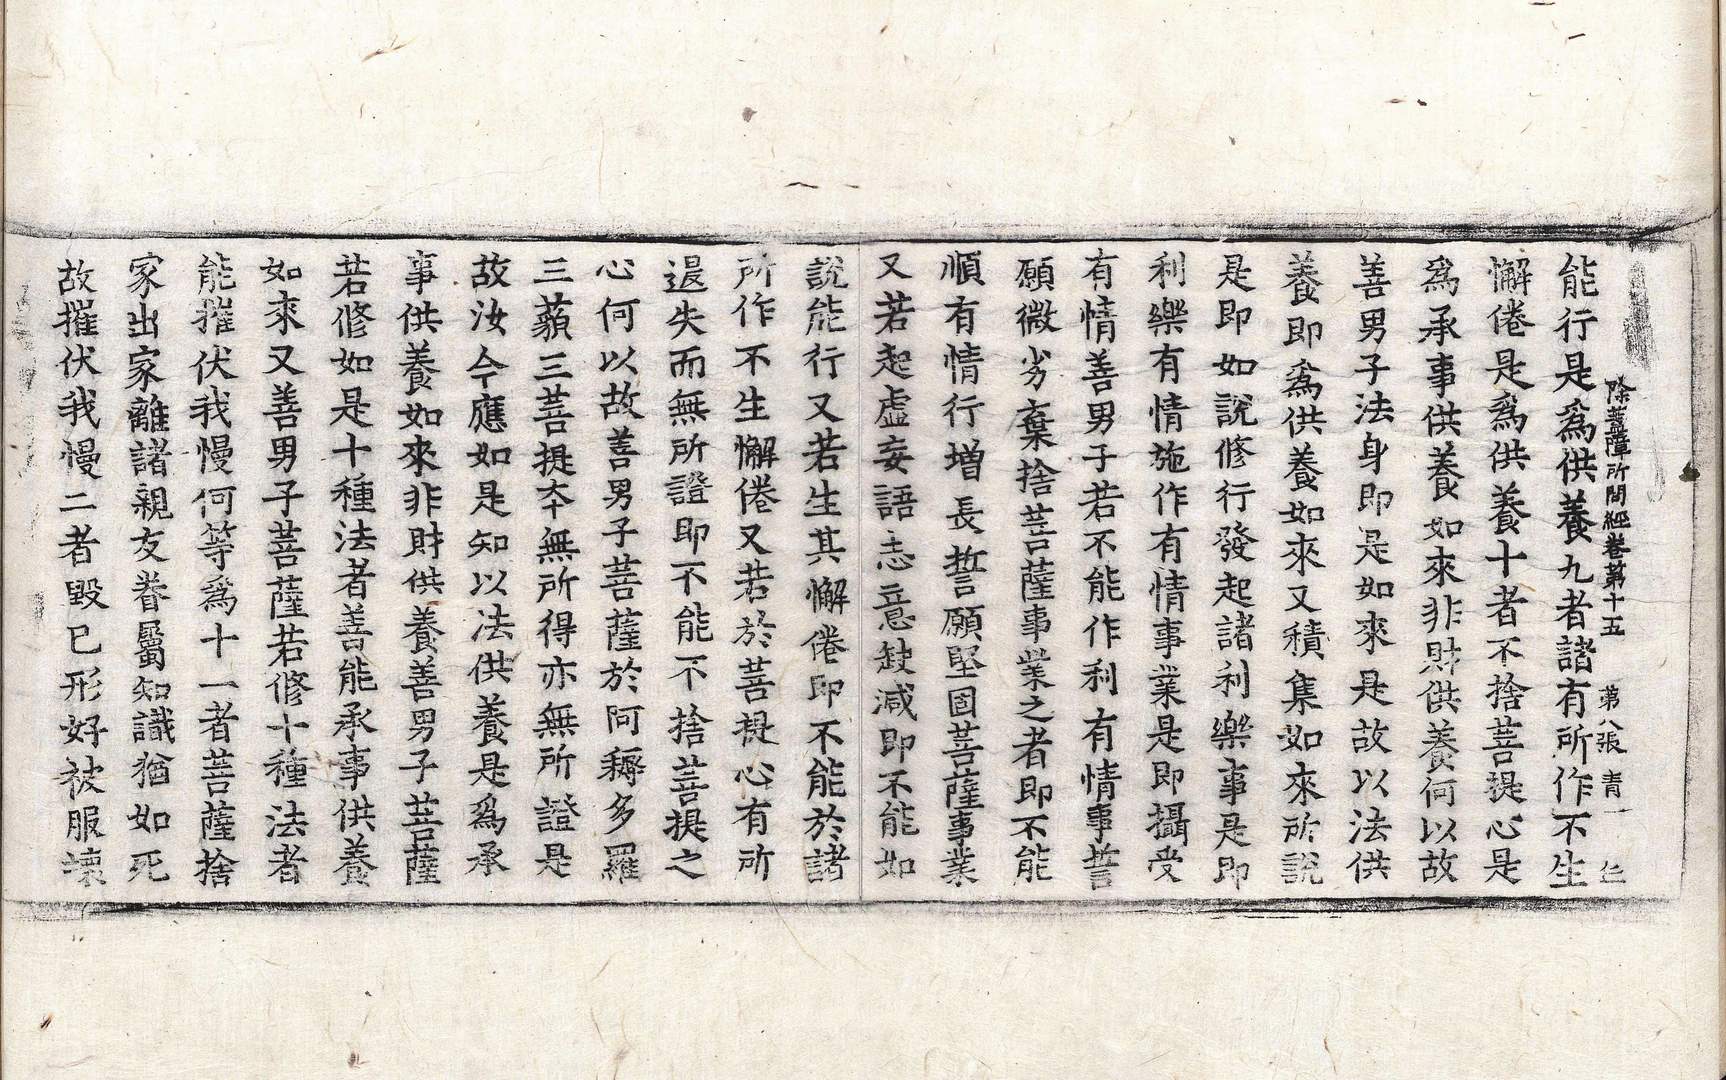 除蓋障所問經卷第十五 第八張 青
能行是爲供養九者諸有所作不生
懈倦是爲供養十者不捨菩提心是
爲承事供養如來非財供養何以故
善男子法身即是如來是故以法供
養即爲供養如來又積集如來所說
是即如說修行發起諸利樂事是即
利樂有情施作有情事業是即攝受
有情善男子若不能作利有情事誓
願微劣棄捨菩薩事業之者即不能
順有情行增長誓願堅固菩薩事業
又若起虛妄語志意缺減即不能如
說能行又若生其懈倦即不能於諸
所作不生懈倦又若於菩提心有所
退失而無所證即不能不捨菩提之
心何以故善男子菩薩於阿耨多羅
三藐三菩提本無所得亦無所證是
故汝今應如是知以法供養是爲承
事供養如來非財供養善男子菩薩
若修如是十種法者善能承事供養
如來又善男子菩薩若修十種法者
能摧伏我慢何等爲十一者菩薩捨
家出家離諸親友眷屬知識猶如死
故摧伏我慢二者毀已形好被服壞